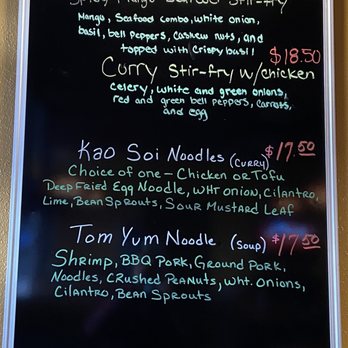 Spicy Mango Seafood Stir-fry
Mango, Seafood combo, white onion,
basil, bell peppers, cashew nuts, and
topped with crispy basil!
$18.50
Curry Stir-fry w/chicken
celery, white and green onions,
red and green bell peppers, carrots,
and egg
Kao Soi Noodles (curry) $17.50
Choice of one - Chicken or Tofu
Deep Fried Egg Noodle, Wht onion, Cilantro,
Lime, Bean Sprouts, Sour Mustard Leaf
Tom Yum Noodle (Soup) $17.50
Shrimp, BBQ Pork, Ground Pork,
Noodles, Crushed Peanuts, Wht. Onions,
Cilantro, Bean Sprouts